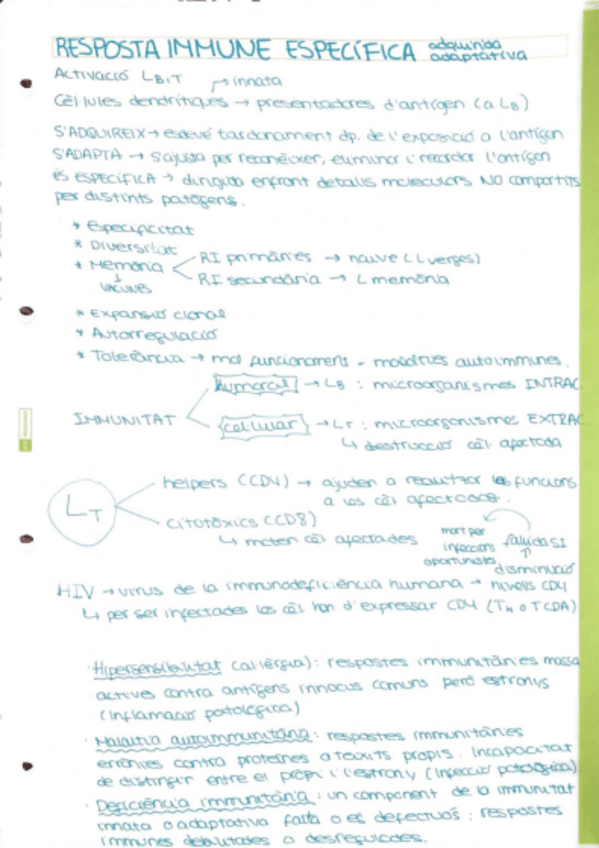 RESPOSTA IMMUNE ESPECÍFICA adquirida
adaptativa
Activació LB i T → innata
Cèl·lules dendrítiques → presentadores d'antígen (a LB)
S'ADQUIREIX → esdevé tardanament dp. de l'exposició a l'antígen
S'ADAPTA → s'ajusta per reconèixer, eliminar i recordar l'antígen
és ESPECÍFICA → dirigida enfront detalls moleculars NO compartits
per distints patògens.
* Especificitat
* Diversitat
* Memòria
RI primàries → naive (L verges)
RI secundària → L memòria
↓
VACUNES
* Expansió clonal
* Autorregulació
* Tolerància → mal funcionament = malalties autoimmunes.
IMMUNITAT
humoral → LB : microorganismes INTRAC.
cel·lular → LT : microorganismes EXTRAC.
↳ destrucció cèl. afectada
LT
helpers (CD4) → ajuden a realitzar les funcions
a les cèl afectades.
citotòxics (CD8)
↳ maten cèl afectades
mort per
infeccions
oportunistes
fallida SI
↑
disminució
HIV → virus de la immunodeficiència humana → nivells CD4
↳ per ser infectades les cèl han d'expressar CD4 (TH o TCD4)
· Hipersensibilitat (al·lèrgia): respostes immunitàries massa
actives contra antígens innocus comuns però estranys
(inflamació patològica)
· Malaltia autoimmunitària: respostes immunitàries
errònies contra proteïnes o teixits propis. Incapacitat
de distingir entre el propi i l'estrany (infecció patològica)
· Deficiència immunitària: un component de la immunitat
innata o adaptativa falta o és defectuós: respostes
immunes debilitades o desregulades.